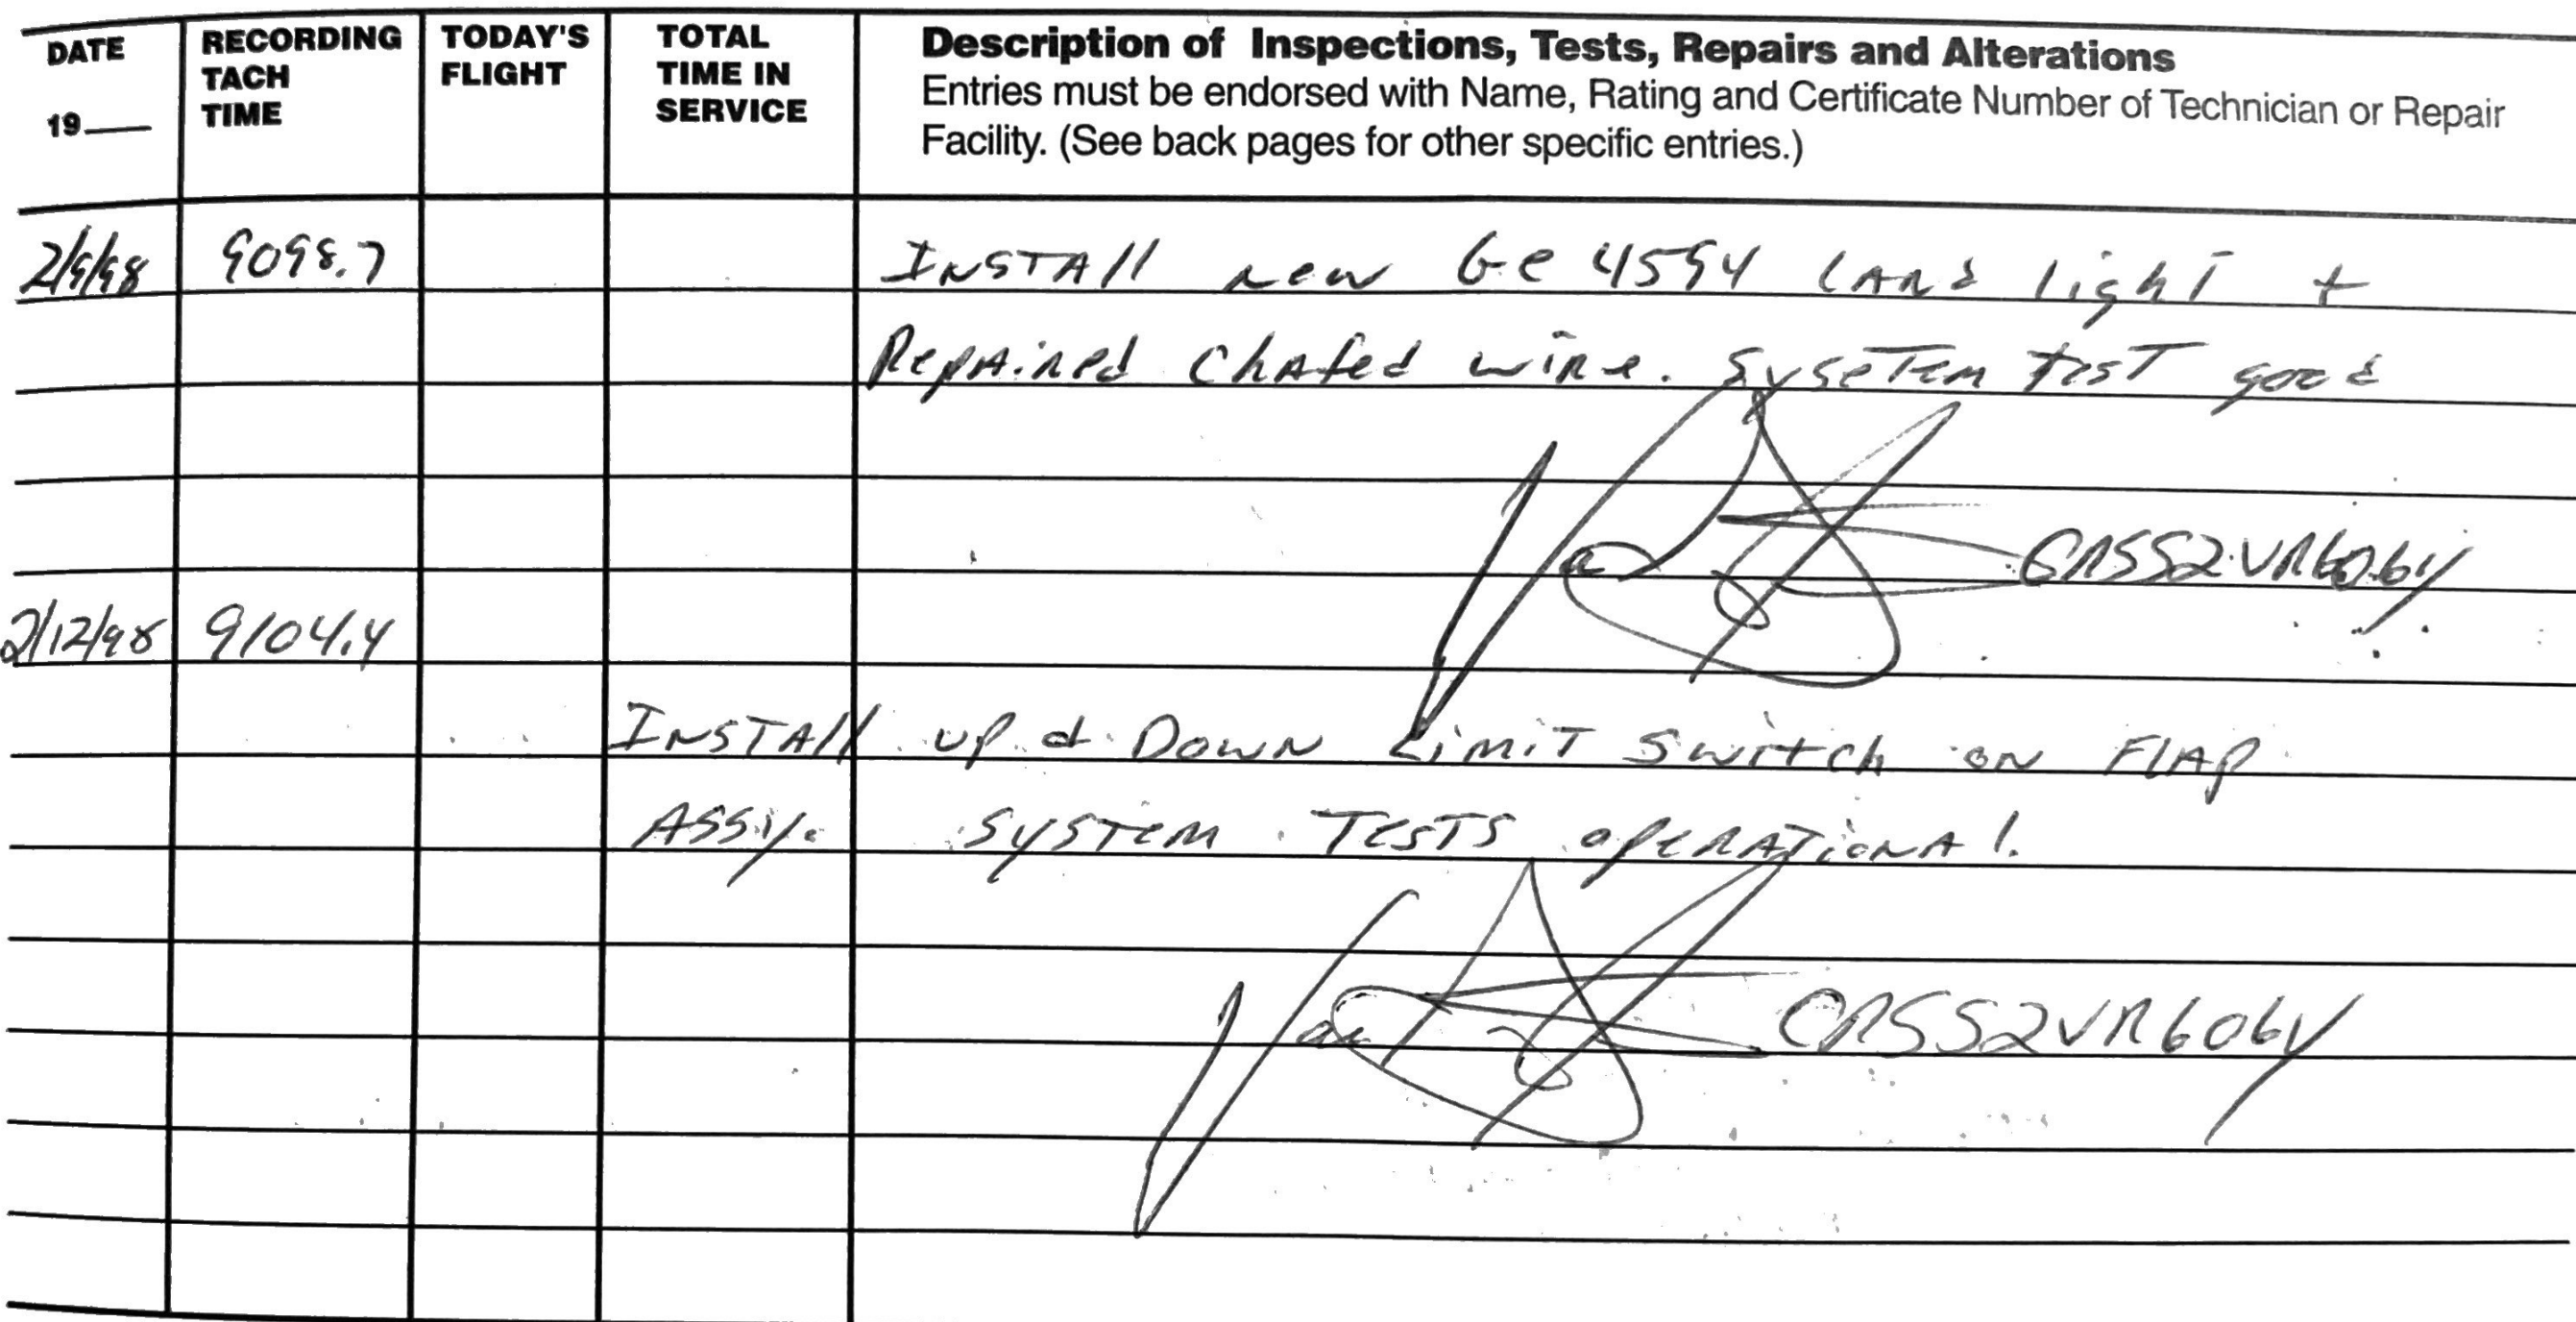 DATE RECORDING TODAY'S TOTAL Description of Inspections, Tests, Repairs and Alterations
TACH FLIGHT TIME IN Entries must be endorsed with Name, Rating and Certificate Number of Technician or Repair
19___ TIME SERVICE Facility. (See back pages for other specific entries.)
2/9/98 9098.7 INSTAll new Ge 4594 LAnd light +
RepAired ChAfed wire. SyseTem test good
CRSS2VR606Y
2/12/98 9104.4
INSTAll up & DOWN LimiT Switch ON FLAP
ASSy. SYSTEM TESTS OPERATIONAl.
CRSS2VR606Y